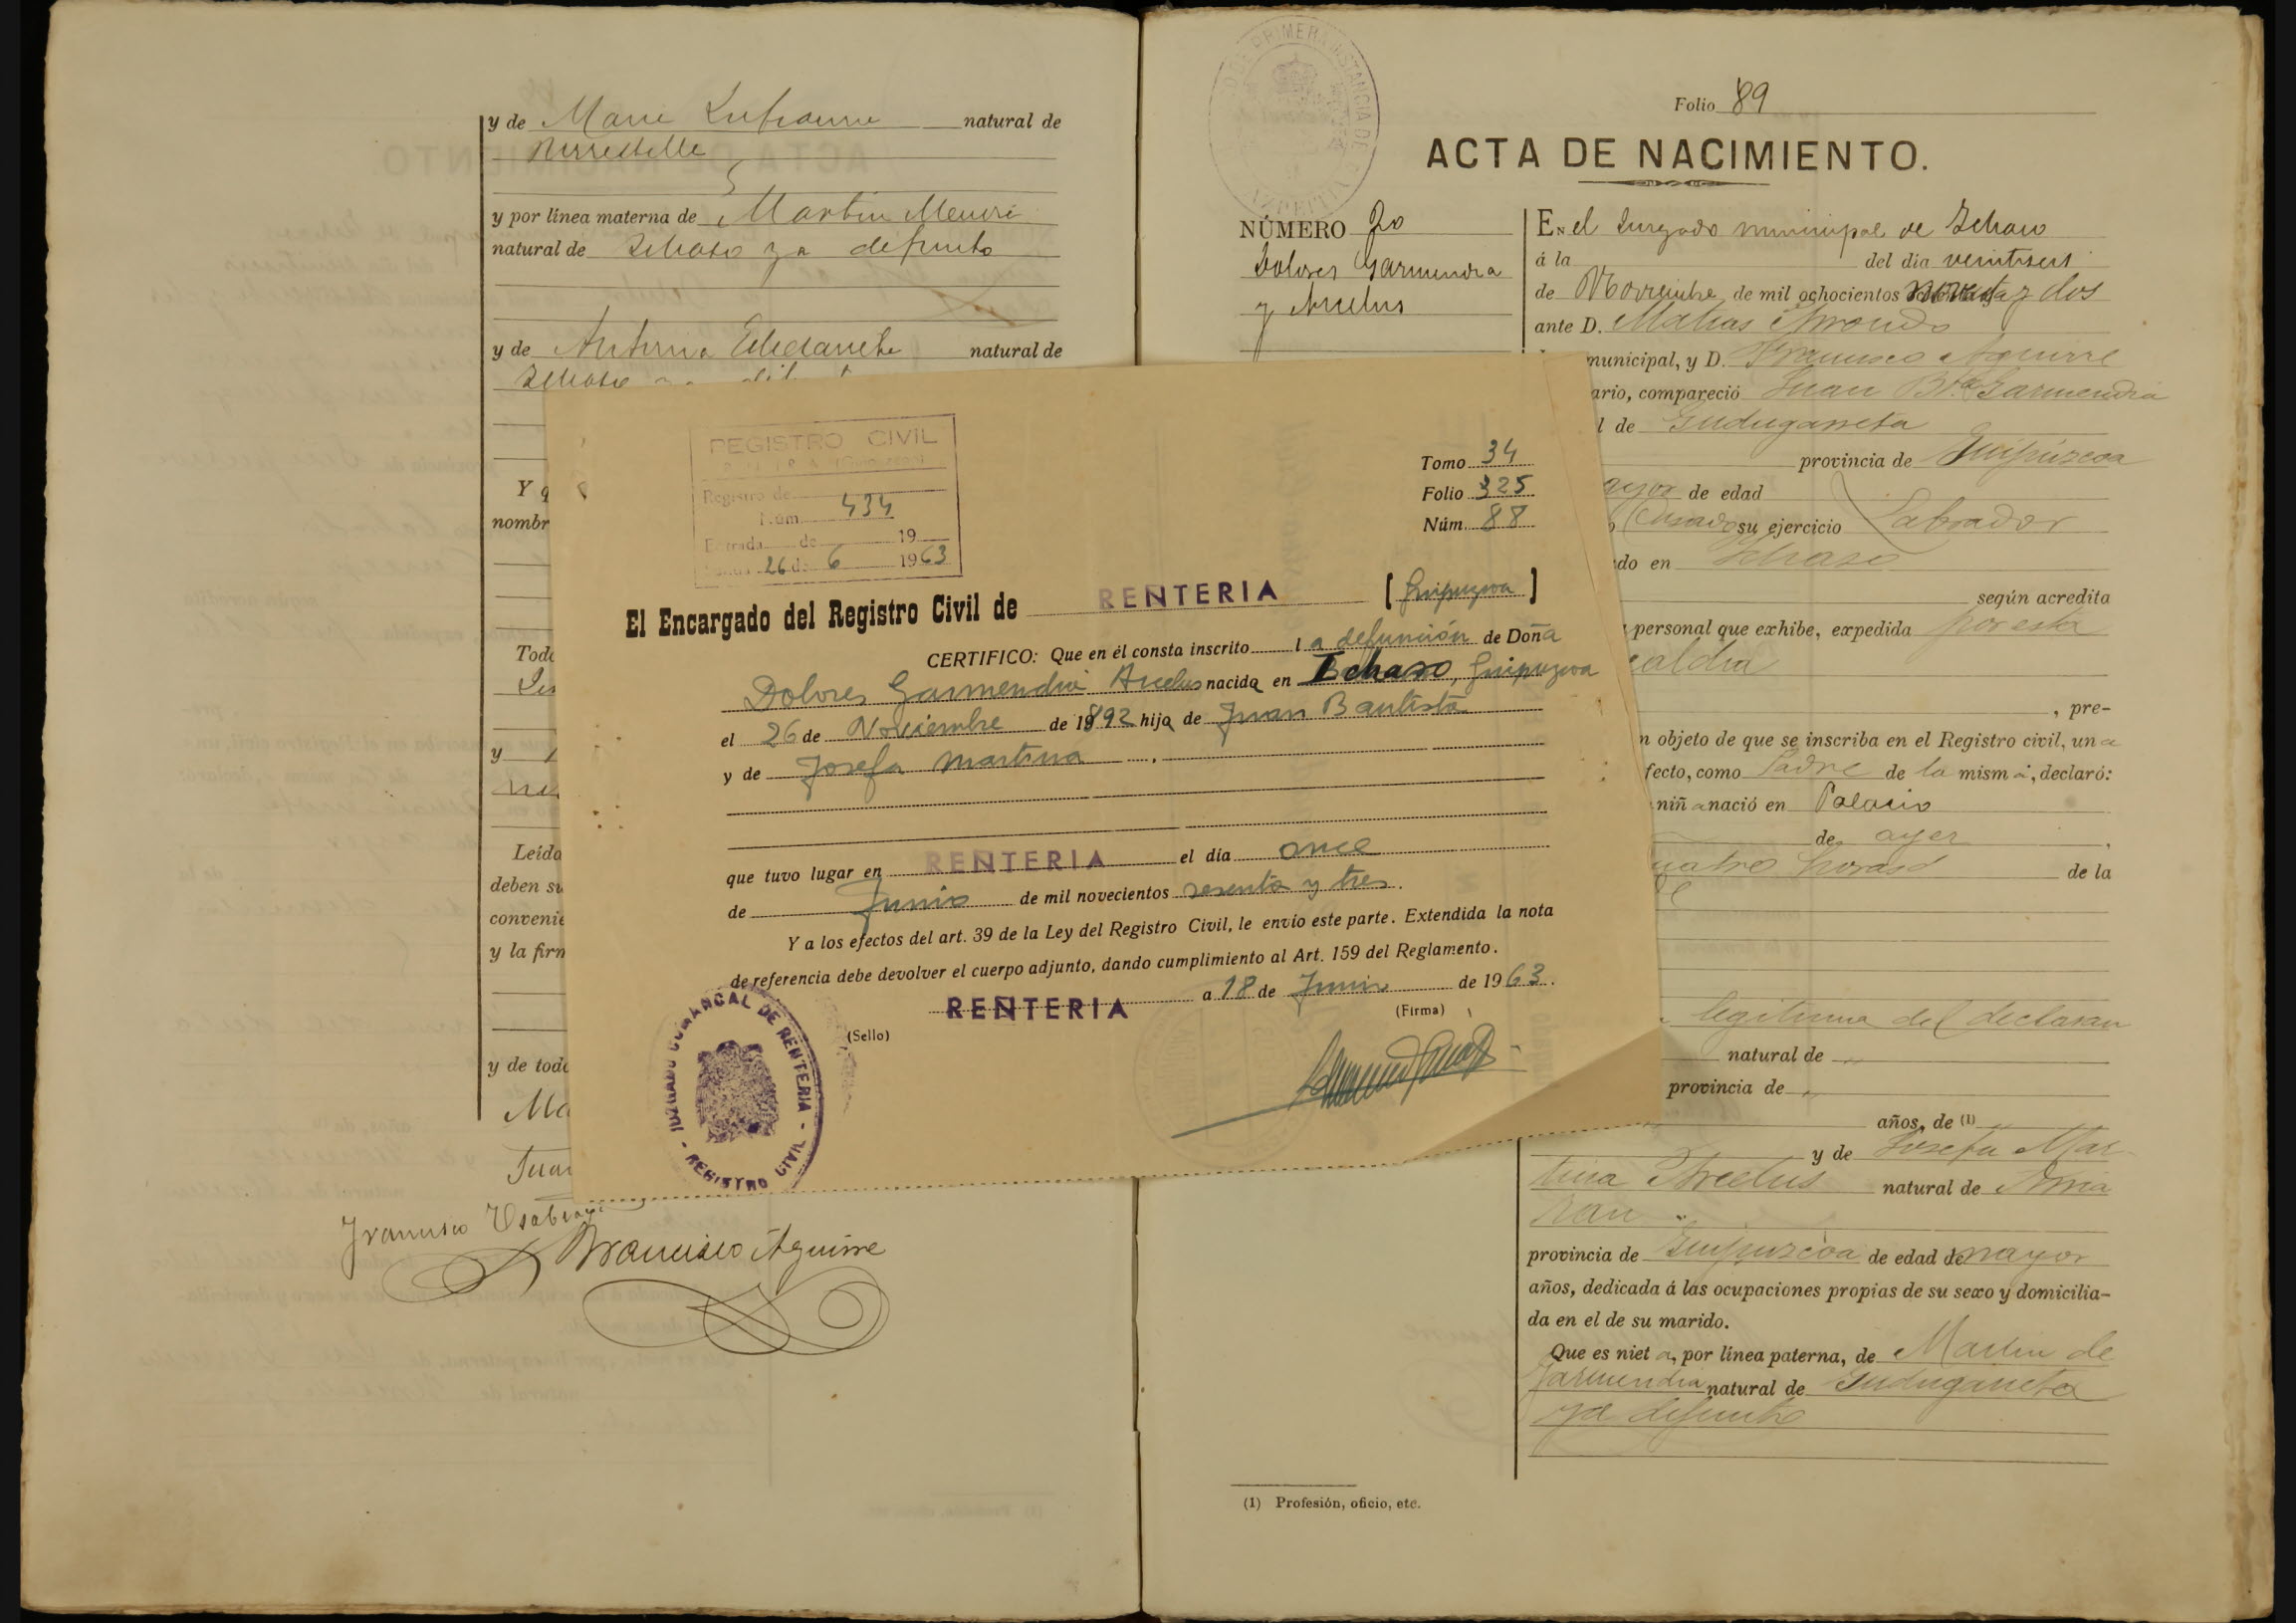 y de Marie natural de
y por línea materna de Martin
natural de Ichaso ya defunto
y de Antonia natural de
Ichaso
Y q
nombr
Todo
y
Leída
deben su
convenie
y la firm
y de todo
Ma
Juan
Francisco
Francisco Aguirre
Folio 89
ACTA DE NACIMIENTO.
NÚMERO 20
Dolores Garmendia
y Arcelus
En el Juzgado municipal de Ichaso
á la del dia veintiseis
de Noviembre de mil ochocientos noventa y dos
ante D. Matias
municipal, y D. Francisco Aguirre
ario, compareció Juan Bta Garmendia
l de Gudugarreta
provincia de Guipúzcoa
ayor de edad
Casado su ejercicio Labrador
do en Ichaso
según acredita
personal que exhibe, expedida por esta
caldia
, pre-
n objeto de que se inscriba en el Registro civil, una
fecto, como Padre de la misma, declaró:
niña nació en Palacio
de ayer,
cuatro horas de la
legitima del declaran
natural de "
provincia de "
años, de (1)
y de Josefa Mar
tina Arcelus natural de Arria
ran
provincia de Guipúzcoa de edad de mayor
años, dedicada á las ocupaciones propias de su sexo y domicilia-
da en el de su marido.
Que es nieta, por línea paterna, de Martin de
Garmendia natural de Gudugarreta
ya defunto
(1) Profesión, oficio, etc.
REGISTRO CIVIL
Registro de
Núm. 434
Entrada de 19
26 de 6 1963
Tomo 34
Folio 325
Núm. 88
El Encargado del Registro Civil de RENTERIA [Guipuzcoa]
CERTIFICO: Que en él consta inscrito la defunción de Doña
Dolores Garmendia Arcelus nacida en Ichaso, Guipuzcoa
el 26 de Noviembre de 1892 hija de Juan Bautista
y de Josefa Martina
que tuvo lugar en RENTERIA el día once
de Junio de mil novecientos sesenta y tres.
Y a los efectos del art. 39 de la Ley del Registro Civil, le envío este parte. Extendida la nota
de referencia debe devolver el cuerpo adjunto, dando cumplimiento al Art. 159 del Reglamento.
RENTERIA a 18 de Junio de 1963.
(Sello)
(Firma)
JUZGADO COMARCAL DE RENTERIA
- REGISTRO CIVIL -